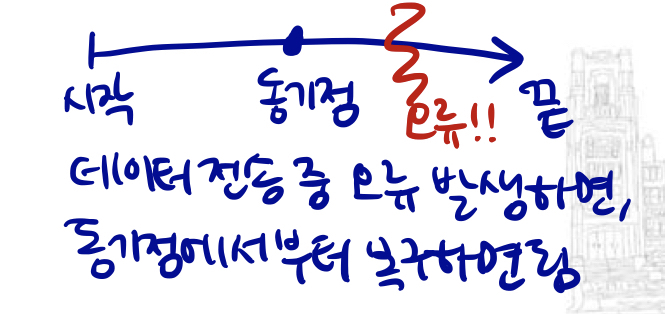 시작 동기점 오류!! 끝
데이터 전송 중 오류 발생하면,
동기점에서부터 복구하면됨